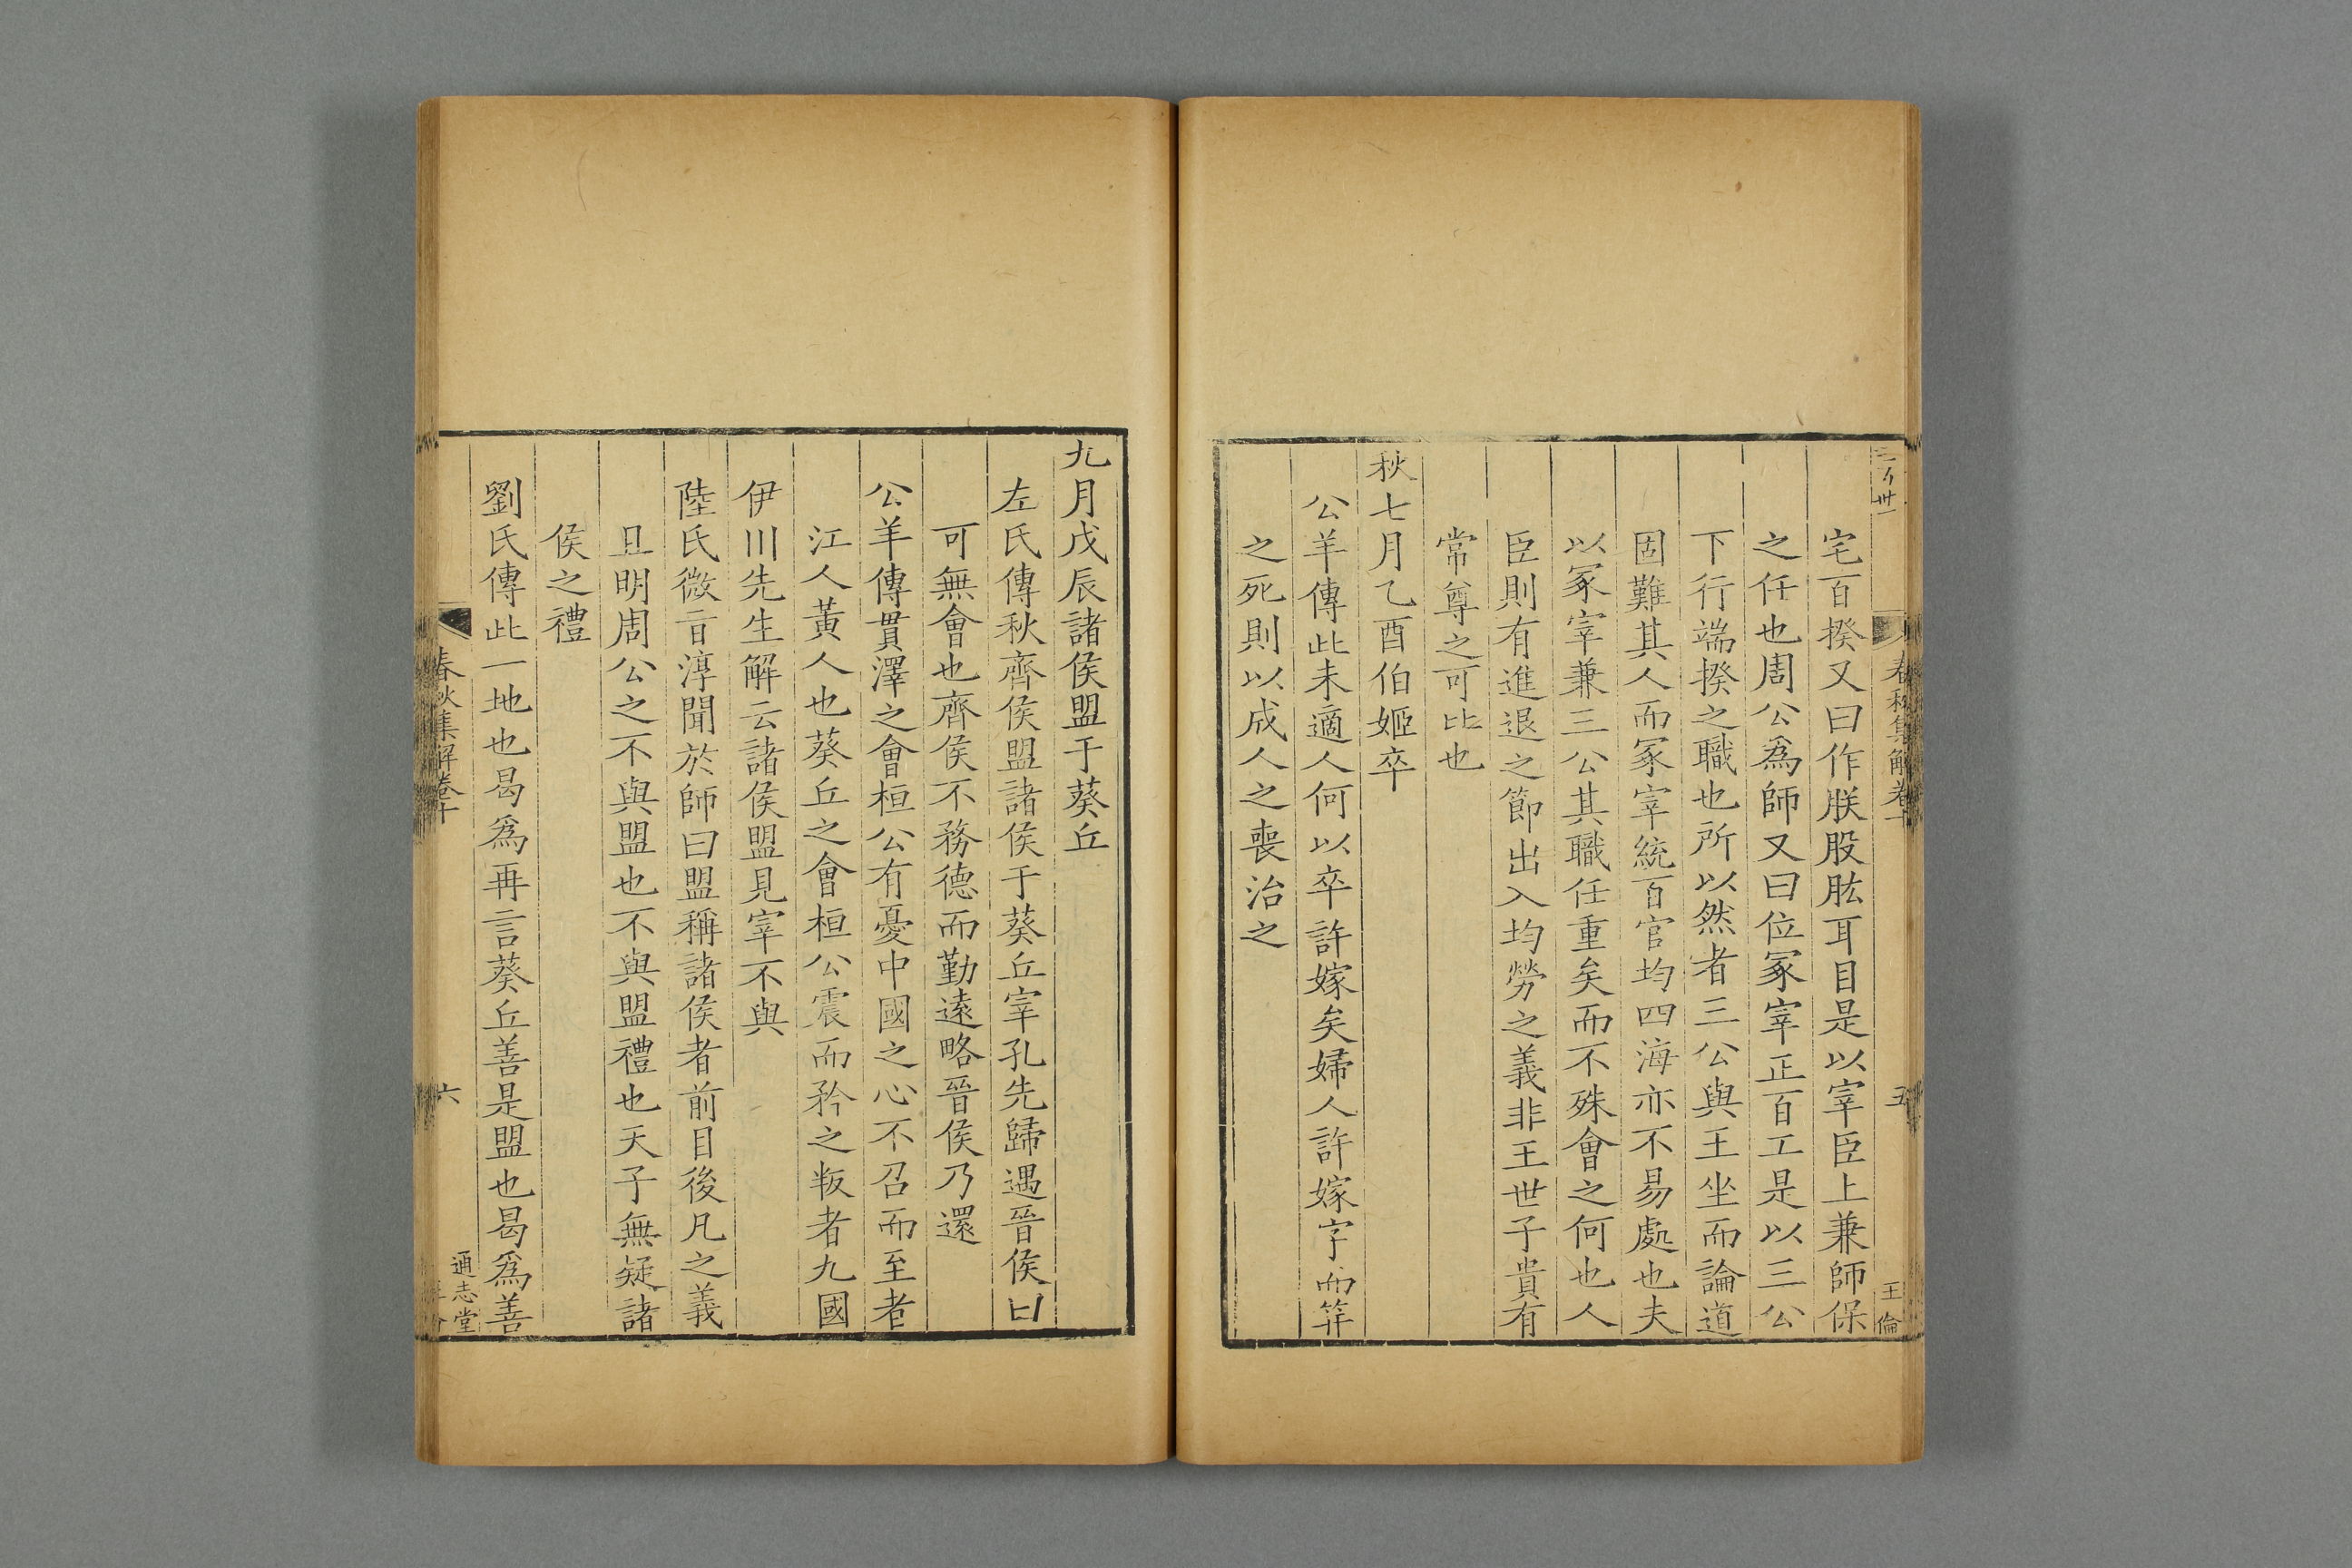 春秋集解卷十
五
王倫
宅百揆又曰作朕股肱耳目是以宰臣上兼師保
之任也周公爲師又曰位冢宰正百工是以三公
下行端揆之職也所以然者三公與王坐而論道
固難其人而冢宰統百官均四海亦不易處也夫
以冢宰兼三公其職任重矣而不殊會之何也人
臣則有進退之節出入均勞之義非王世子貴有
常尊之可比也
秋七月乙酉伯姬卒
公羊傳此未適人何以卒許嫁矣婦人許嫁字而笄
之死則以成人之喪治之
九月戊辰諸侯盟于葵丘
左氏傳秋齊侯盟諸侯于葵丘宰孔先歸遇晉侯曰
可無會也齊侯不務德而勤遠略晉侯乃還
公羊傳貫澤之會桓公有憂中國之心不召而至者
江人黃人也葵丘之會桓公震而矜之叛者九國
伊川先生解云諸侯盟見宰不與
陸氏微旨淳聞於師曰盟稱諸侯者前目後凡之義
且明周公之不與盟也不與盟禮也天子無疑諸
侯之禮
劉氏傳此一地也曷爲再言葵丘善是盟也曷爲善
春秋集解卷十
六
通志堂